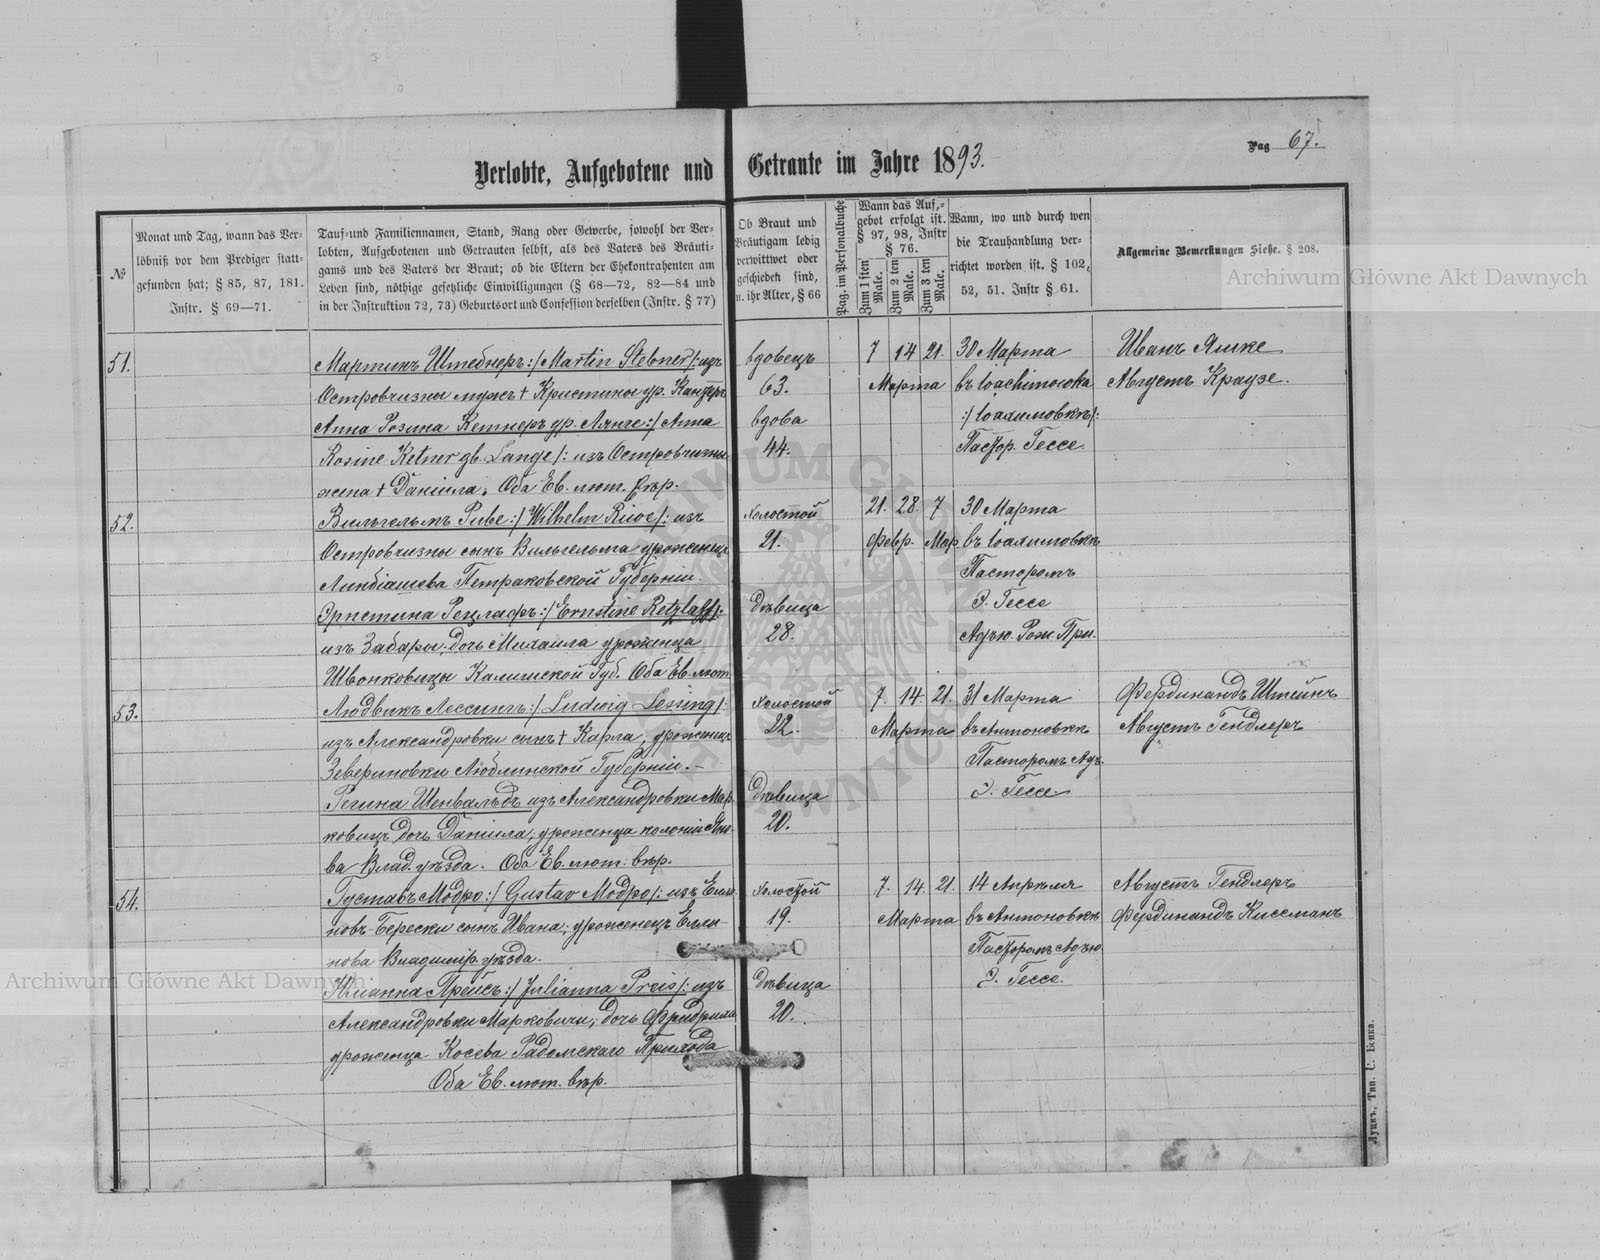 Verlobte, Aufgebotene und Getraute im Jahre 1893.
Pag 67.
№
Monat und Tag, wann das Ver-
löbniß vor dem Prediger statt-
gefunden hat; § 85, 87, 181.
Instr. § 69—71.
Tauf- und Familiennamen, Stand, Rang oder Gewerbe, sowohl der Ver-
lobten, Aufgebotenen und Getrauten selbst, als des Vaters des Bräuti-
gams und des Vaters der Braut; ob die Eltern der Ehekontrahenten am
Leben sind, nöthige gesetzliche Einwilligungen (§ 68—72, 82—84 und
in der Instruktion 72, 73) Geburtsort und Confession derselben (Instr. § 77)
Ob Braut und
Bräutigam ledig
verwittwet oder
geschieden sind,
u. ihr Alter, § 66
Pag. im Personalbuche
Wann das Auf-
gebot erfolgt ist.
§ 97, 98, Instr
§ 76.
Zum 1 sten Male.
Zum 2 ten Male.
Zum 3 ten Male.
Wann, wo und durch wen
die Trauhandlung ver-
richtet worden ist. § 102,
52, 51. Instr § 61.
Allgemeine Bemerkungen Siehe. § 208.
51.
Мартинъ Штебнеръ :/ Martin Stebner /: изъ
Островчизны мужъ † Кристины ур. Канцеръ
Анна Розина Кетнеръ ур. Лянге :/ Anna
Rosine Ketner gb. Lange /: изъ Островчизны
жена † Данiила. Оба Ев. лют. вѣр.
вдовецъ
63.
вдова
44.
7 14 21.
Марта
30 Марта
въ Ioachimowka
:/ Iоахимовкѣ /:
Пастор. Гессе.
Иванъ Яшке
Августъ Краузе.
52.
Вильгельмъ Риве :/ Wilhelm Rüwe /: изъ
Островчизны сынъ Вильгельма уроженецъ
Петраковской Губернiи.
Эрнстина Рецлафъ :/ Ernstine Retzlaff /:
изъ Забары, дочь Михаила уроженца
Калишской Губ. Оба Ев. лют
Холостой
21.
Дѣвица
28.
21. 28. 7
Февр. Мар.
30 Марта
въ Iоахимовкѣ
Пасторомъ
Э. Гессе
Адъю. Рож. При.
53.
Людвикъ Лессингъ :/ Ludwig Lessing /:
изъ Александровки сынъ † Карла, уроженецъ
Зевериновки Люблинской Губернiи. –
Регина Шенвальдъ изъ Александровки Мар-
ковичъ дочь Данiила, уроженца колонiи
ва Влад. уѣзда. Оба Ев. лют. вѣр.
Холостой
22.
Дѣвица
20.
7. 14. 21.
Марта
31 Марта
въ Антоновкѣ
Пасторомъ Адъ.
Э. Гессе
Фердинандъ Штейнъ
Августъ Гендлеръ
54.
Густавъ Модро :/ Gustav Модро /: изъ
новъ-Берески сынъ Ивана; уроженецъ Елли-
нова Владимiр. уѣзда.
Юлiанна Прейсъ :/ Julianna Preis /: изъ
Александровки Марковичи, дочь Фридриха
уроженца Косева Радомскаго Прихода
Оба Ев. лют. вѣр.
Холостой
19.
Дѣвица
20.
7. 14. 21.
Марта
14 Апрѣля
въ Антоновкѣ
Пасторомъ Адъю.
Э. Гессе.
Августъ Гендлеръ
Фердинандъ Киссманъ
Луцкъ, Тип. С. Бонка.
Archiwum Główne Akt Dawnych
Archiwum Główne Akt Dawnych